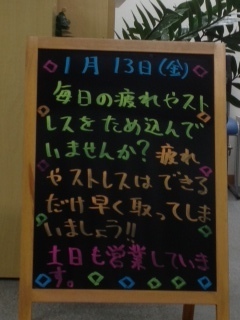 1月13日(金)
毎日の疲れやスト
レスをため込んで
いませんか?疲れ
やストレスはできる
だけ早く取ってしま
いましょう!!
土日も営業していま
す。